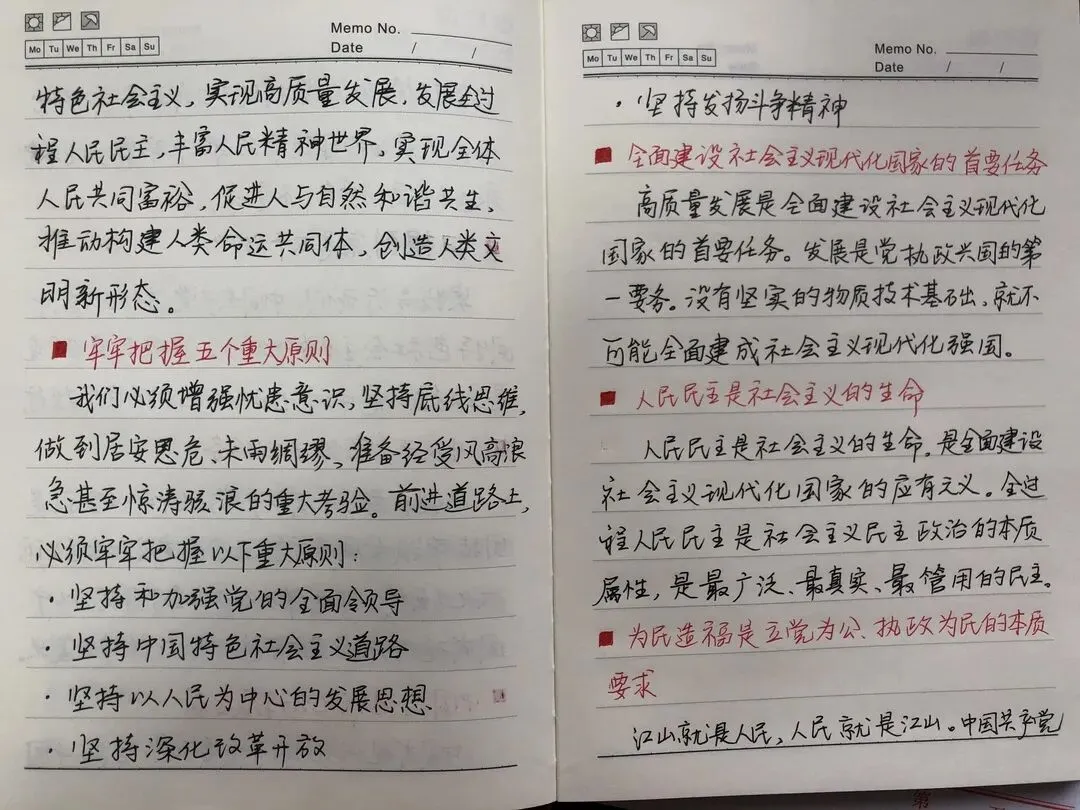 Mo Tu We Th Fr Sa Su
Memo No.
Date / /
特色社会主义，实现高质量发展，发展全过
程人民民主，丰富人民精神世界，实现全体
人民共同富裕，促进人与自然和谐共生，
推动构建人类命运共同体，创造人类文
明新形态。
牢牢把握五个重大原则
我们必须增强忧患意识，坚持底线思维，
做到居安思危、未雨绸缪，准备经受风高浪
急甚至惊涛骇浪的重大考验。前进道路上，
必须牢牢把握以下重大原则：
·坚持和加强党的全面领导
·坚持中国特色社会主义道路
·坚持以人民为中心的发展思想
·坚持深化改革开放
Mo Tu We Th Fr Sa Su
Memo No.
Date / /
·坚持发扬斗争精神
全面建设社会主义现代化国家的首要任务
高质量发展是全面建设社会主义现代化
国家的首要任务。发展是党执政兴国的第
一要务。没有坚实的物质技术基础，就不
可能全面建成社会主义现代化强国。
人民民主是社会主义的生命
人民民主是社会主义的生命，是全面建设
社会主义现代化国家的应有之义。全过
程人民民主是社会主义民主政治的本质
属性，是最广泛、最真实、最管用的民主。
为民造福是立党为公、执政为民的本质
要求
江山就是人民，人民就是江山。中国共产党